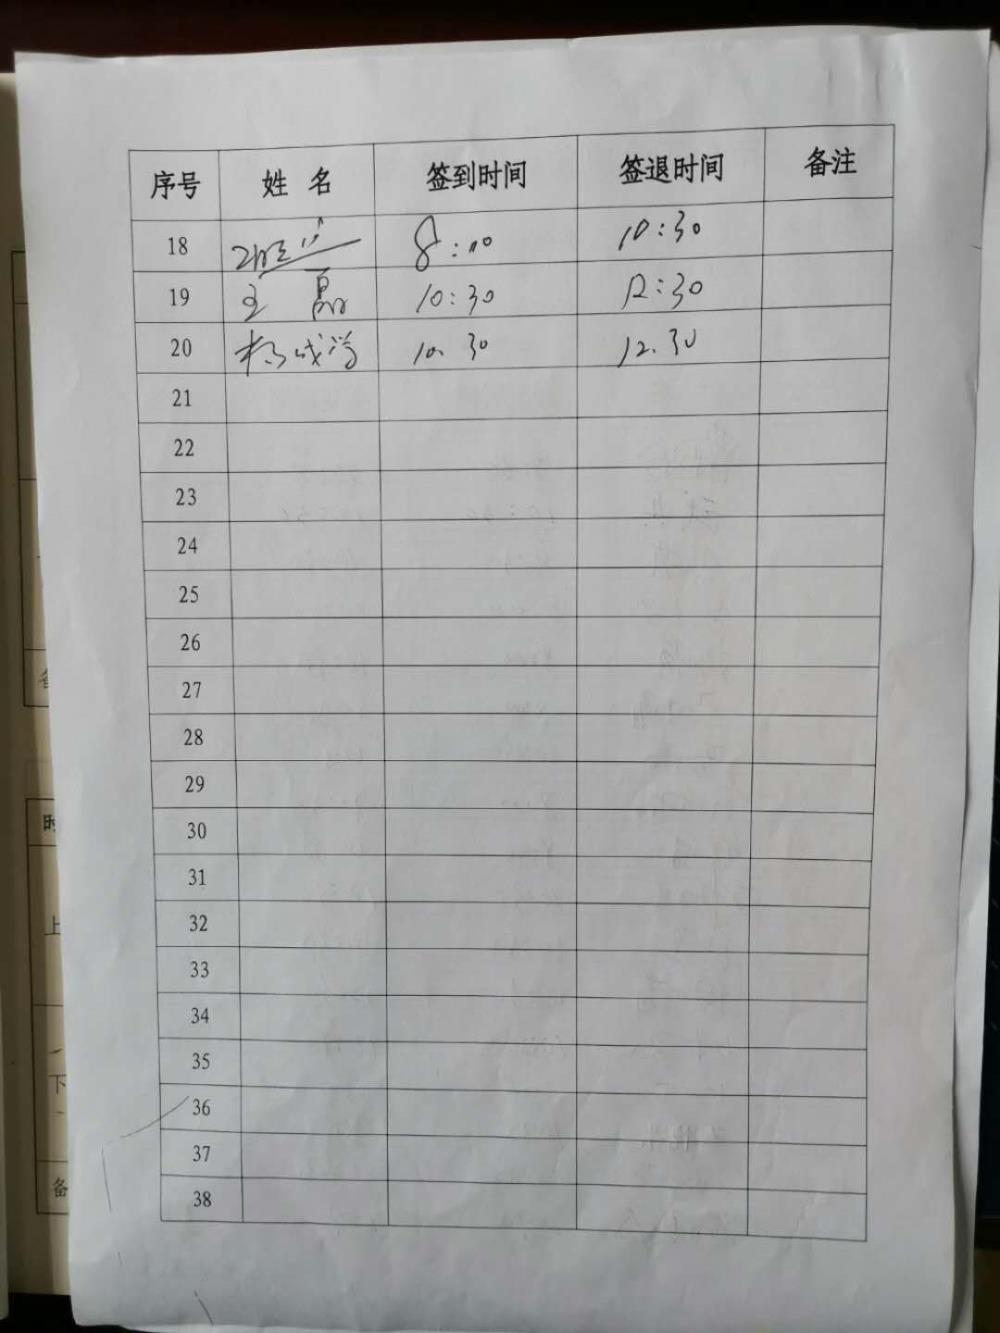 序号 姓名 签到时间 签退时间 备注
18 8:00 10:30
19 王磊 10:30 12:30
20 杨成学 10.30 12.30
21
22
23
24
25
26
27
28
29
30
31
32
33
34
35
36
37
38
时
上
下
备